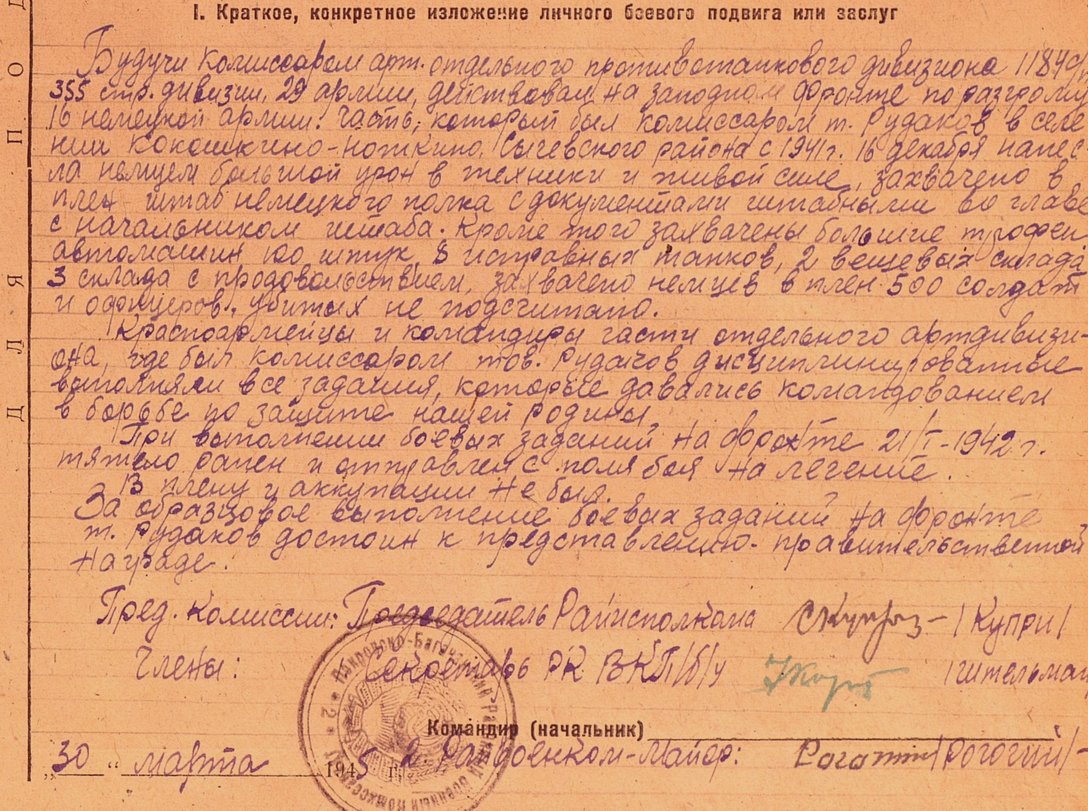 I. Краткое, конкретное изложение личного боевого подвига или заслуг
Будучи комиссаром арт. отдельного противотанкового дивизиона 1184 сп
355 стр. дивизии, 29 армии, действовал на западном фронте по разгрому
16 немецкой армии. Часть, который был комиссаром т. Рудаков в селе-
нии Кокошкино-Ножкино, Сычевского района с 1941 г. 16 декабря нанес-
ла немцем большой урон в техники и живой силе, захвачено в
плен штаб немецкого полка с документами штабными во главе
с начальником штаба. Кроме того захвачены большие трофеи
автомашин 100 штук, 8 исправных танков, 2 вещевых склада
3 склада с продовольствием, захвачено немцев в плен 500 солдат
и офицеров, убитых не подсчитано.
Красноармейцы и командиры части отдельного артдивизи-
она, где был комиссаром тов. Рудаков дисциплинированные
выполняли все задания, которые давались командованием
в борьбе по защите нашей Родины.
При выполнении боевых заданий на фронте 21/I-1942 г.
тяжело ранен и отправлен с поля боя на лечение.
В плену и аккупации не был.
За образцовое выполнение боевых заданий на фронте
т. Рудаков достоин к представлению правительственной
награде.
Пред. комиссии: Председатель Райисполкома /Купри/
Члены: Секретарь РК ВКП/б/у /Гительман
Командир (начальник)
30 " марта 1945 г. Райвоенком-Майор: /Рогогий/
ДЛЯ ПОД